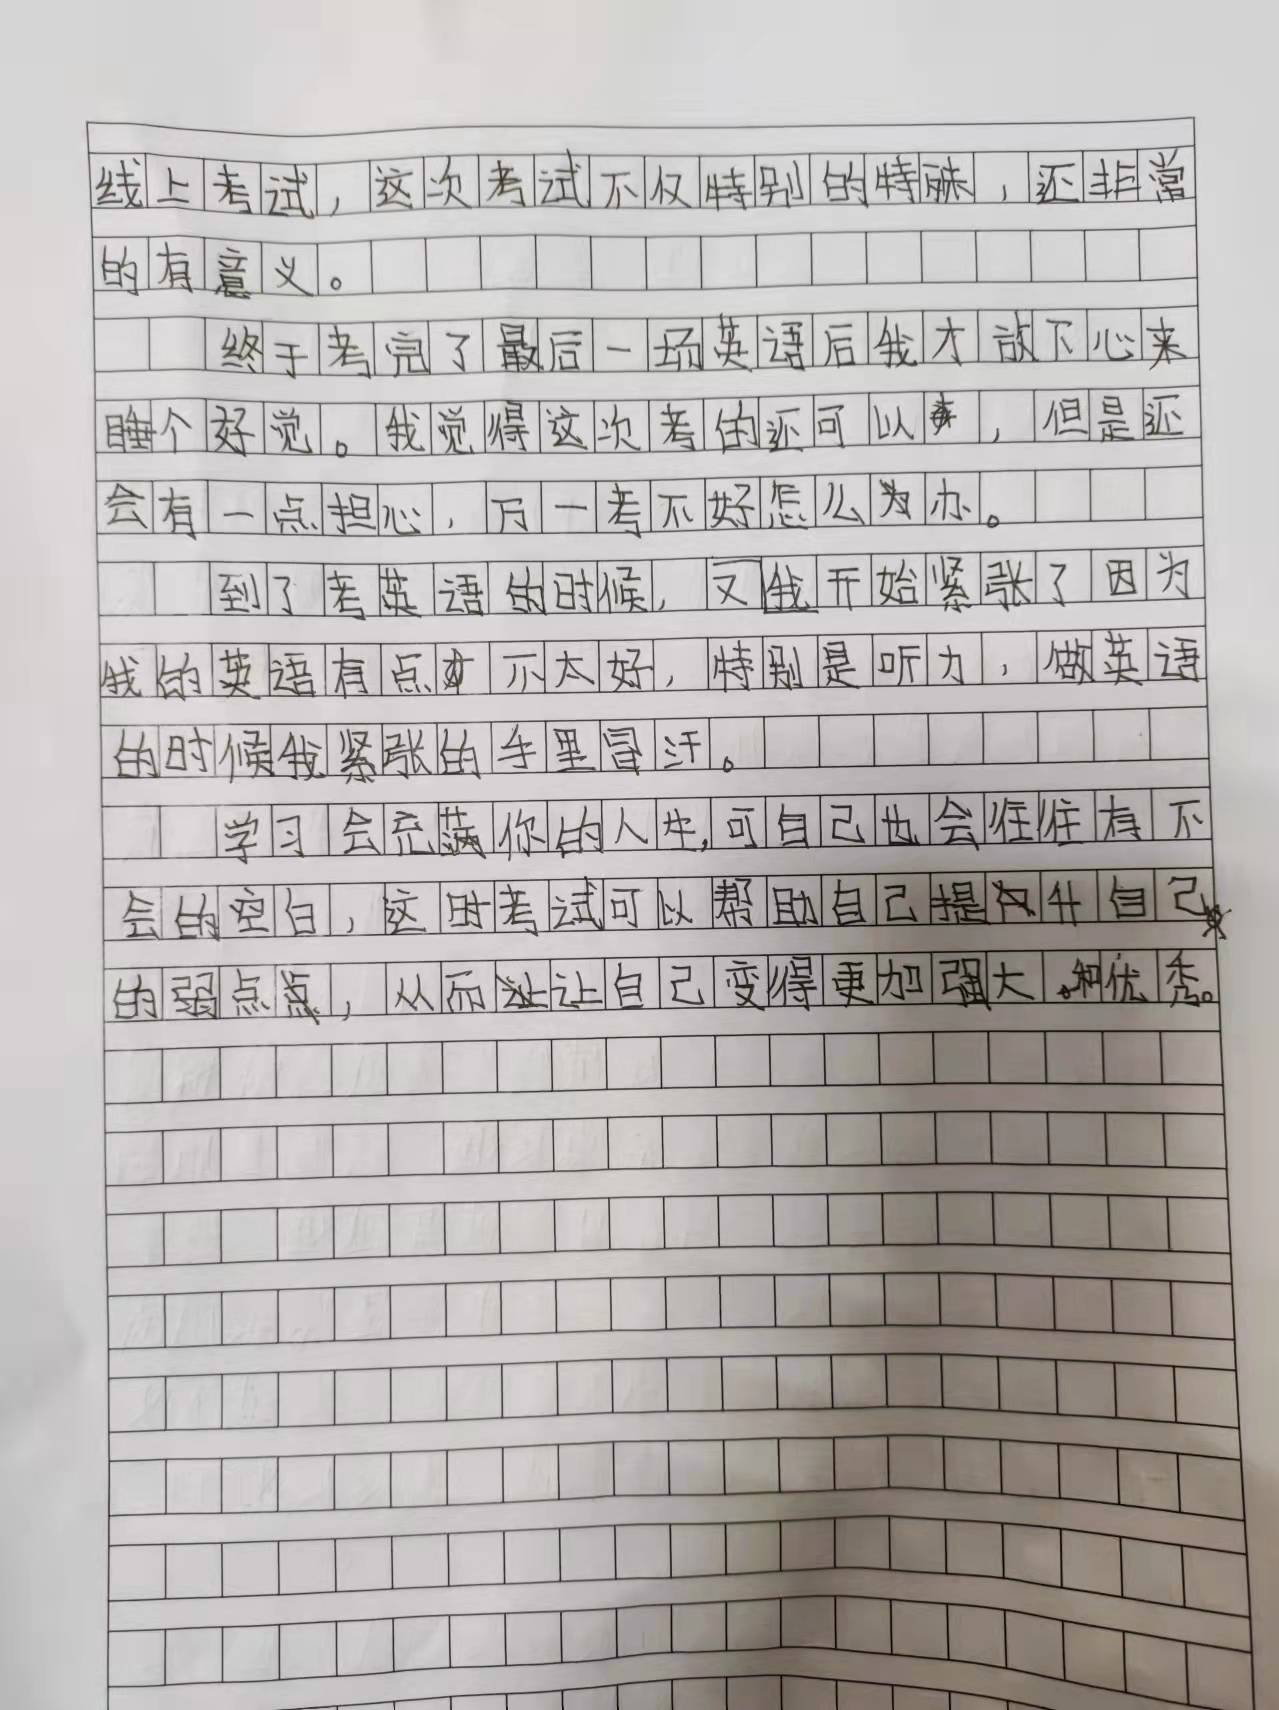 线上考试，这次考试不仅特别的特殊，还非常
的有意义。
终于考完了最后一场英语后我才放下心来
睡个好觉。我觉得这次考的还可以，但是还
会有一点担心，万一考不好怎么办。
到了考英语的时候，又我开始紧张了因为
我的英语有点不太好，特别是听力，做英语
的时候我紧张的手里冒汗。
学习会充满你的人生，可自己也会往往有不
会的空白，这时考试可以帮助自己提升自己
的弱点，从而让自己变得更加强大和优秀。